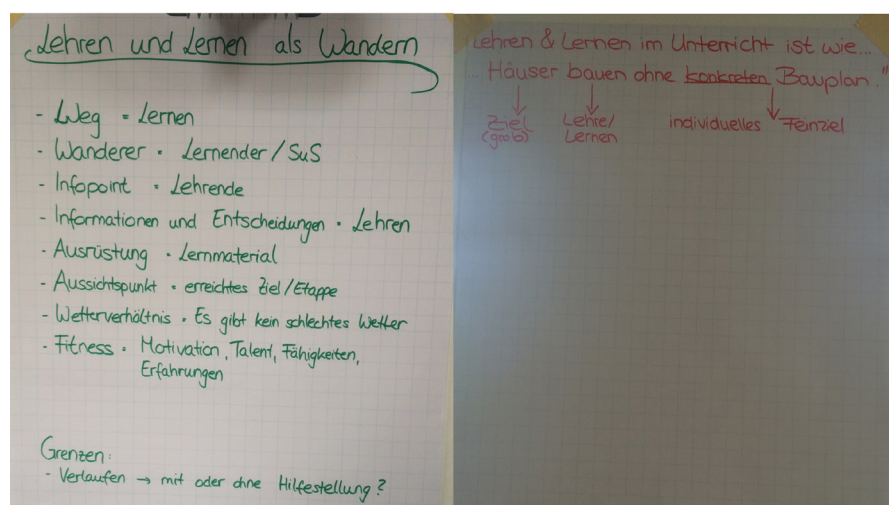 Lehren und Lernen als Wandern
- Weg = Lernen
- Wanderer = Lernender / SuS
- Infopoint = Lehrende
- Informationen und Entscheidungen = Lehren
- Ausrüstung = Lernmaterial
- Aussichtspunkt = erreichtes Ziel / Etappe
- Wetterverhältnis = Es gibt kein schlechtes Wetter
- Fitness = Motivation, Talent, Fähigkeiten,
Erfahrungen
Grenzen:
- Verlaufen → mit oder ohne Hilfestellung?
Lehren & Lernen im Unterricht ist wie...
... Häuser bauen ohne konkreten Bauplan..."
Ziel Lehre/ individuelles Feinziel
(grob) Lernen